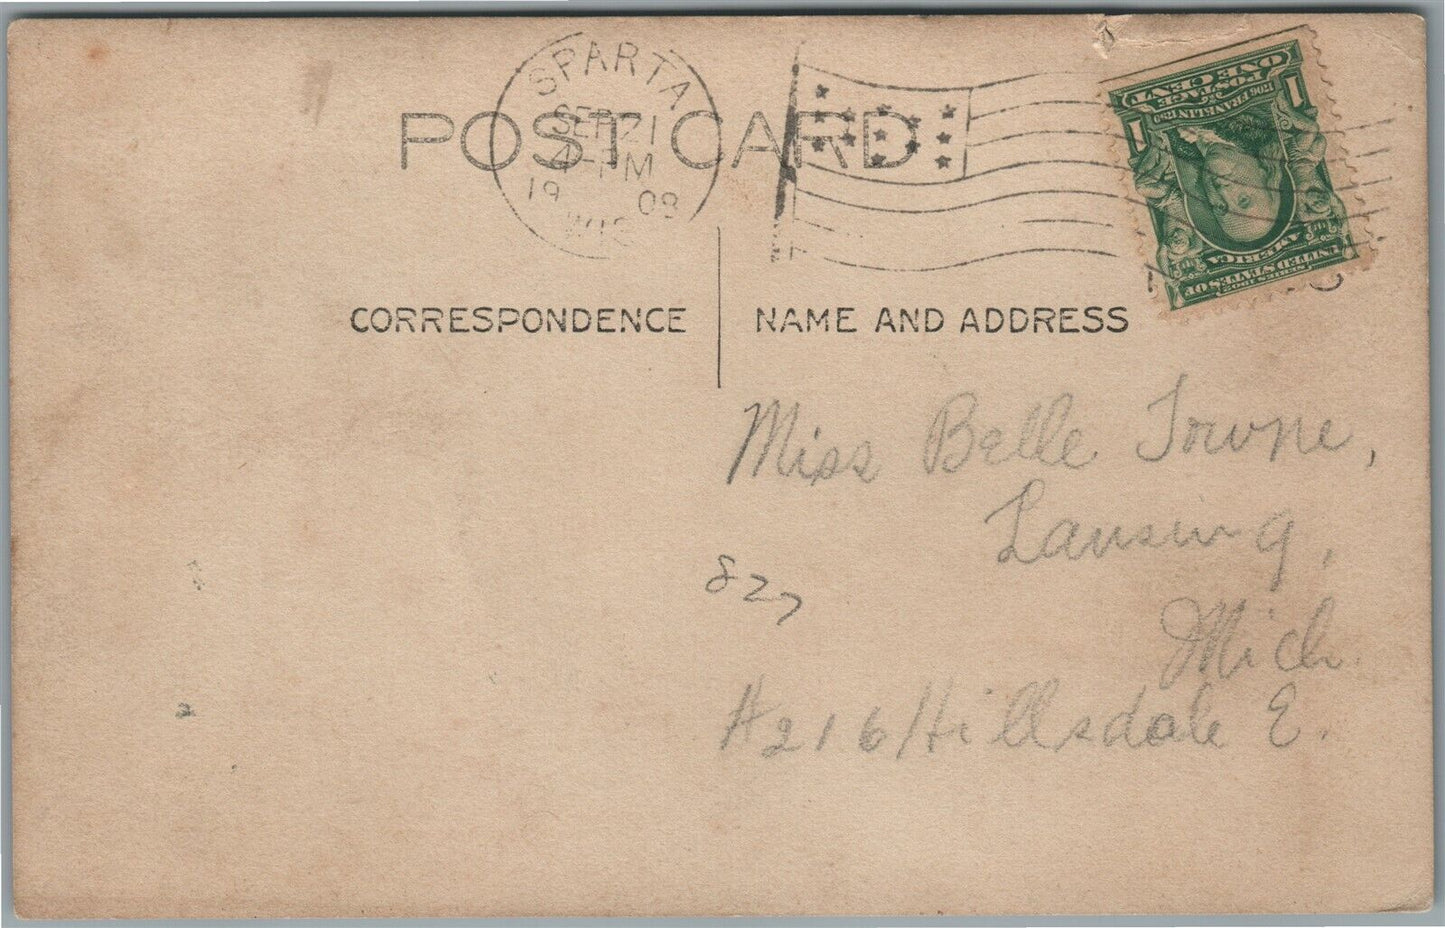 SPARTA
SEP 21
4-PM
1909
WIS
POST CARD
1 1
UNITED STATES OF
AMERICA
SERIES 1902
1706 FRANKLIN 1790
POSTAGE
ONE CENT
CORRESPONDENCE
NAME AND ADDRESS
Miss Belle Towne,
Lansing,
827
Mich.
#216 Hillsdale E.